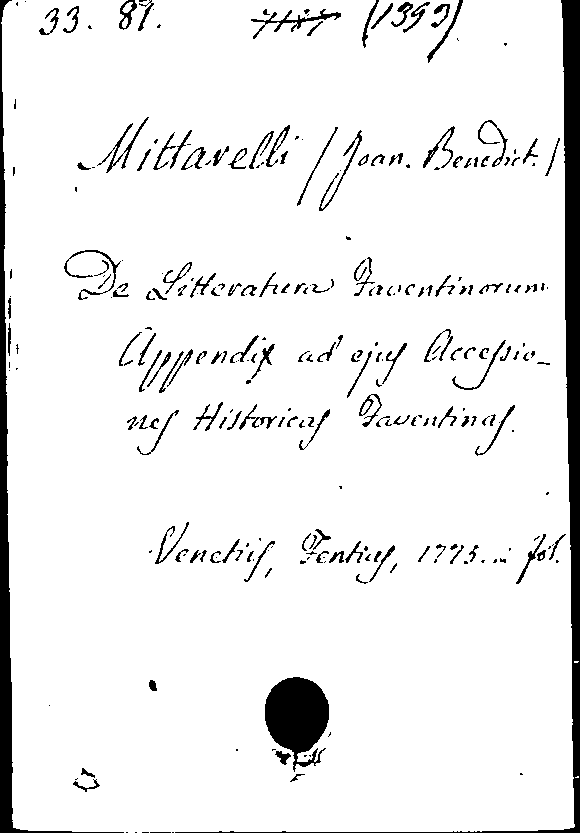 33. 81. 7187 (1393)
Mittarelli / Joan. Benedict. /
De Litteratura Faventinorum
Appendix ad ejus Accessio-
nes Historicas Faventinas.
Venetiis, Fentius, 1775. in fol.